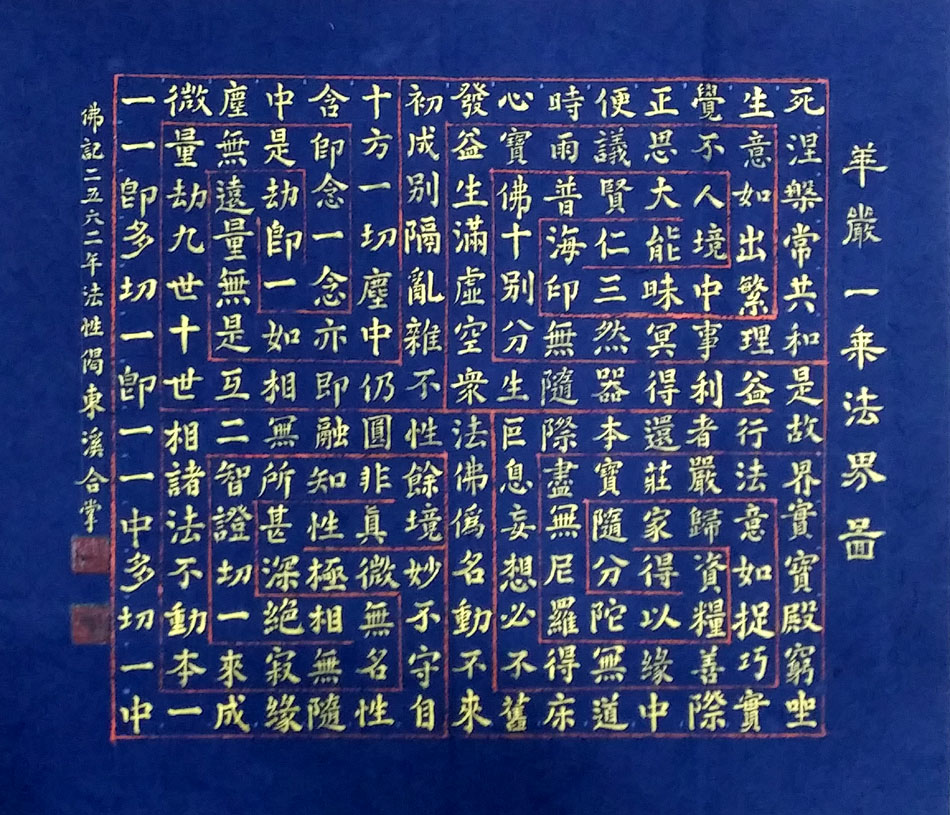 華嚴一乘法界圖
死涅槃常共和是故界實寶殿窮坐
生意如出繁理益行法意如捉巧實
覺不人境中事利者嚴歸資糧善際
正思大能昧冥得還莊家得以緣中
便議賢仁三然器本寶隨分陀無道
時雨普海印無隨際盡無尼羅得床
心寶佛十別分生叵息妄想必不舊
發益生滿虛空衆法佛爲名動不來
初成別隔亂雜不性餘境妙不守自
十方一切塵中仍圓非眞微無名性
含卽念一念亦即融知性極相無隨
中是劫卽一如相無所甚深絕寂緣
塵無遠量無是互二智證切一來成
微量劫九世十世相諸法不動本一
一一卽多切一卽一一中多切一中
佛記二五六二年法性偈東溪合掌